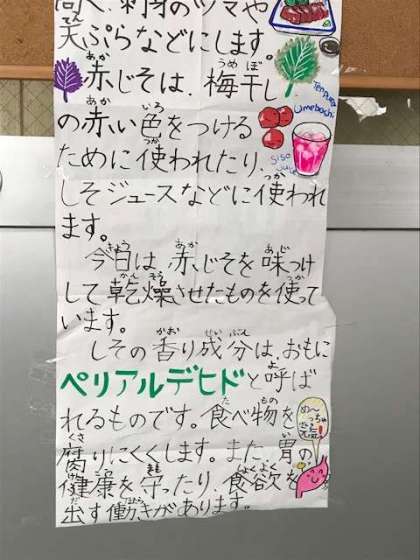 刺身のツマや
天ぷらなどにします。
赤じそは、梅干し
の赤い色をつける
ために使われたり、
しそジュースなどに使われ
ます。
今日は、赤じそを味つけ
して乾燥させたものを使って
います。
しその香り成分は、おもに
ペリアルデヒドと呼ば
れるものです。食べ物を
腐りにくくします。また、胃の
健康を守ったり、食欲を
出す働きがあります。
Tempura
Umeboshi
Siso
Juice